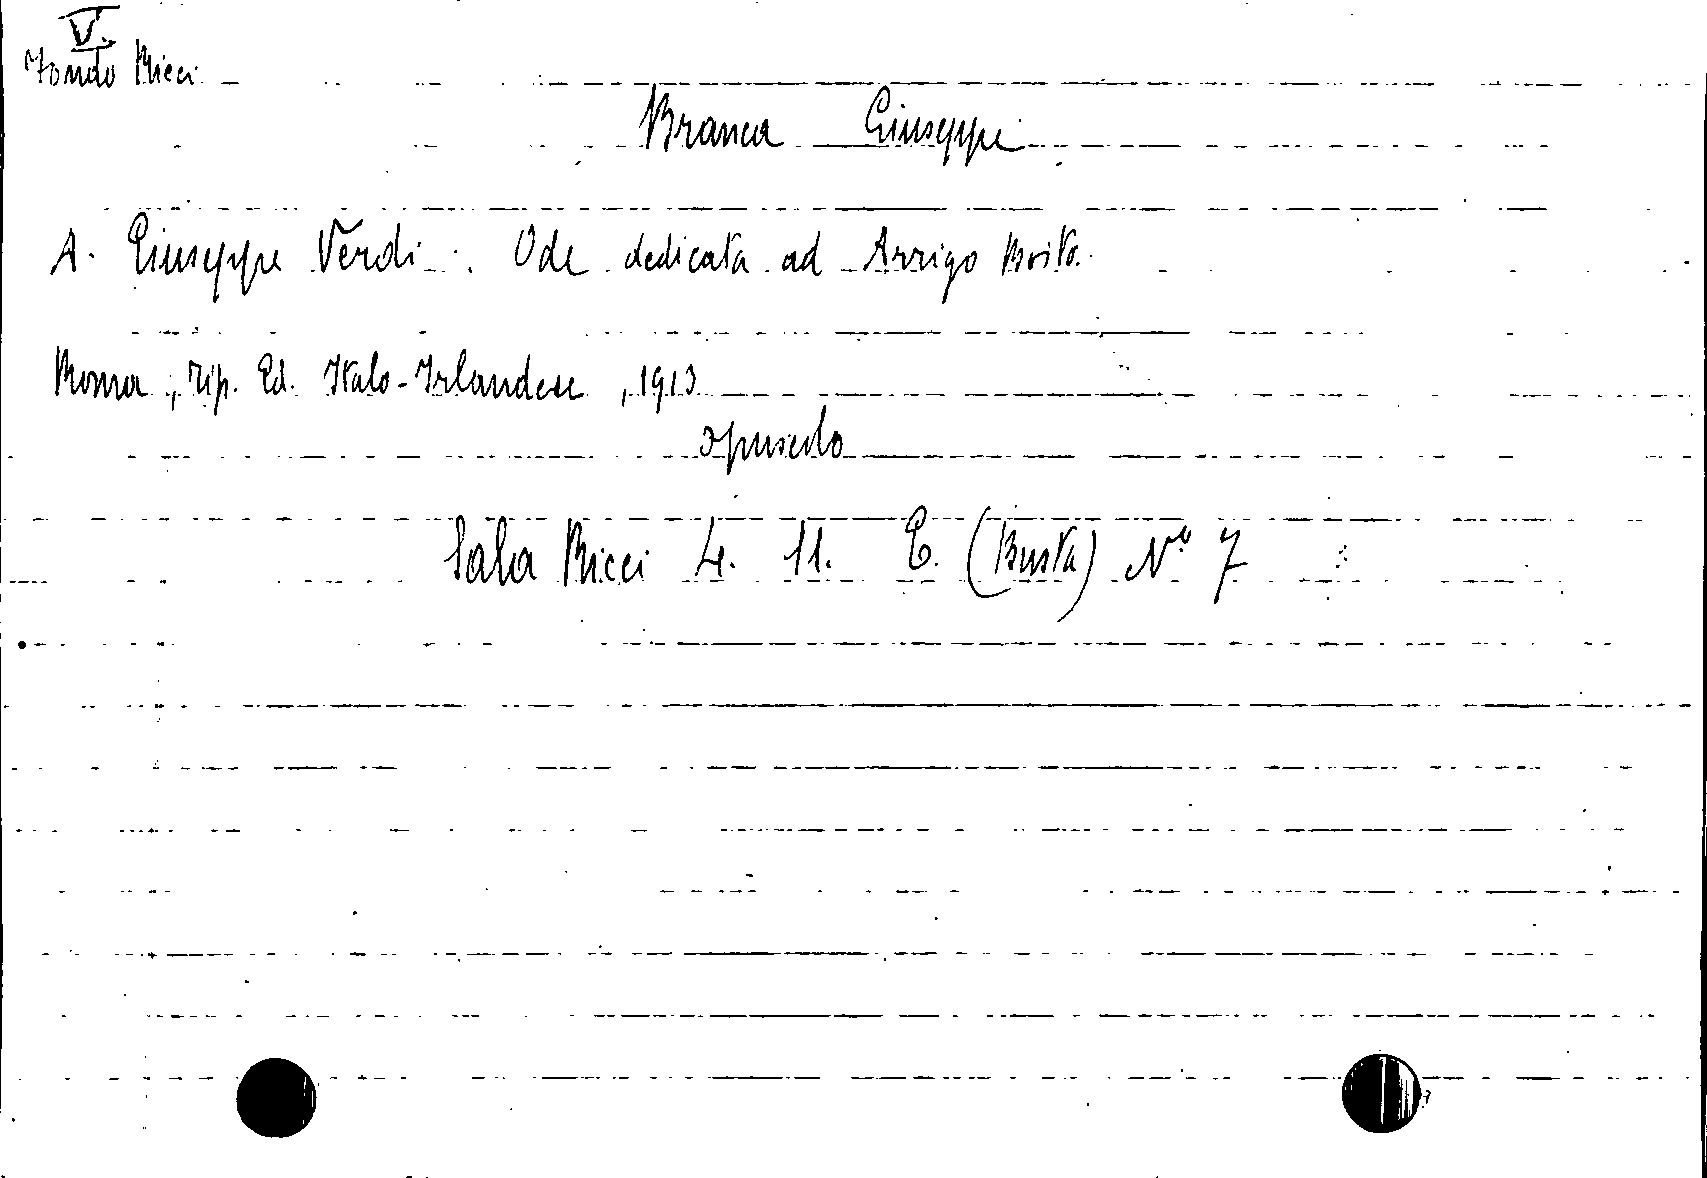 V.
Fondo Ricci
Branca Giuseppe
A. Giuseppe Verdi. Ode dedicata ad Arrigo Boito.
Roma, Tip. Ed. Italo-Irlandese, 1913
opuscolo
Sala Ricci 4. 11. E. (Busta) Nº 7